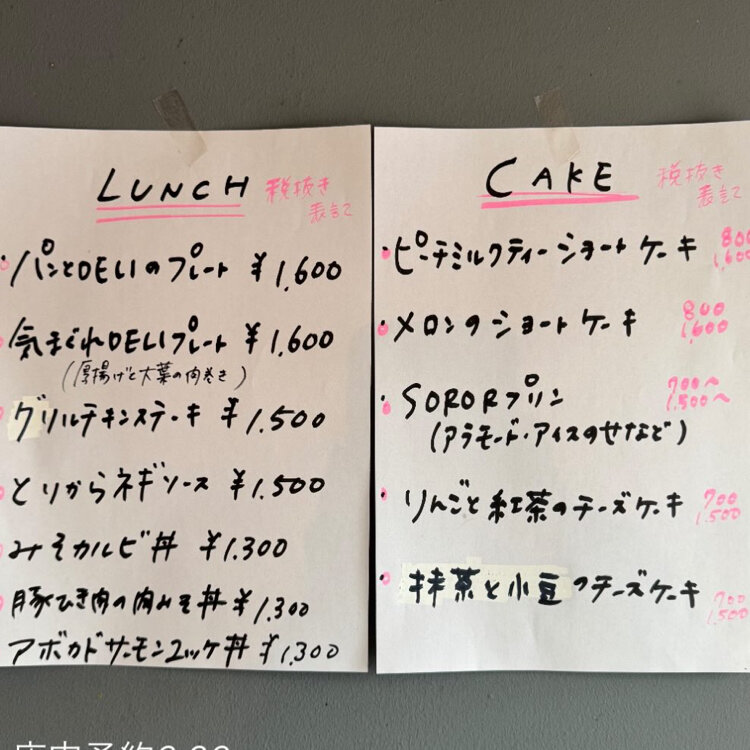 LUNCH 税抜き
表記
・パンとDELIのプレート ¥1,600
気まぐれDELIプレート ¥1,600
(厚揚げと大葉の肉巻き)
グリルチキンステーキ ¥1,500
とりからネギソース ¥1,500
みそカルビ丼 ¥1,300
豚ひき肉の肉みそ丼 ¥1,300
アボカドサーモンユッケ丼 ¥1,300
CAKE 税抜き
表記
・ピーチミルクティーショートケーキ 800
1,600
・メロンのショートケーキ 800
1,600
・SORORプリン 700〜
1,500〜
(アラモード・アイスのせなど)
・りんごと紅茶のチーズケーキ 700
1,500
・抹茶と小豆のチーズケーキ 700
1,500